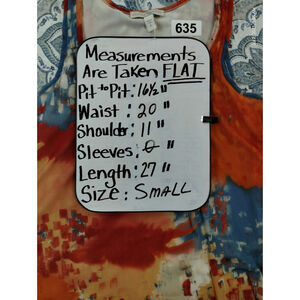 635
Measurements
Are Taken FLAT
Pit to Pit: 16 1/2 "
Waist : 20 "
Shoulder: 11 "
Sleeves: 0 "
Length: 27 "
Size: SMALL